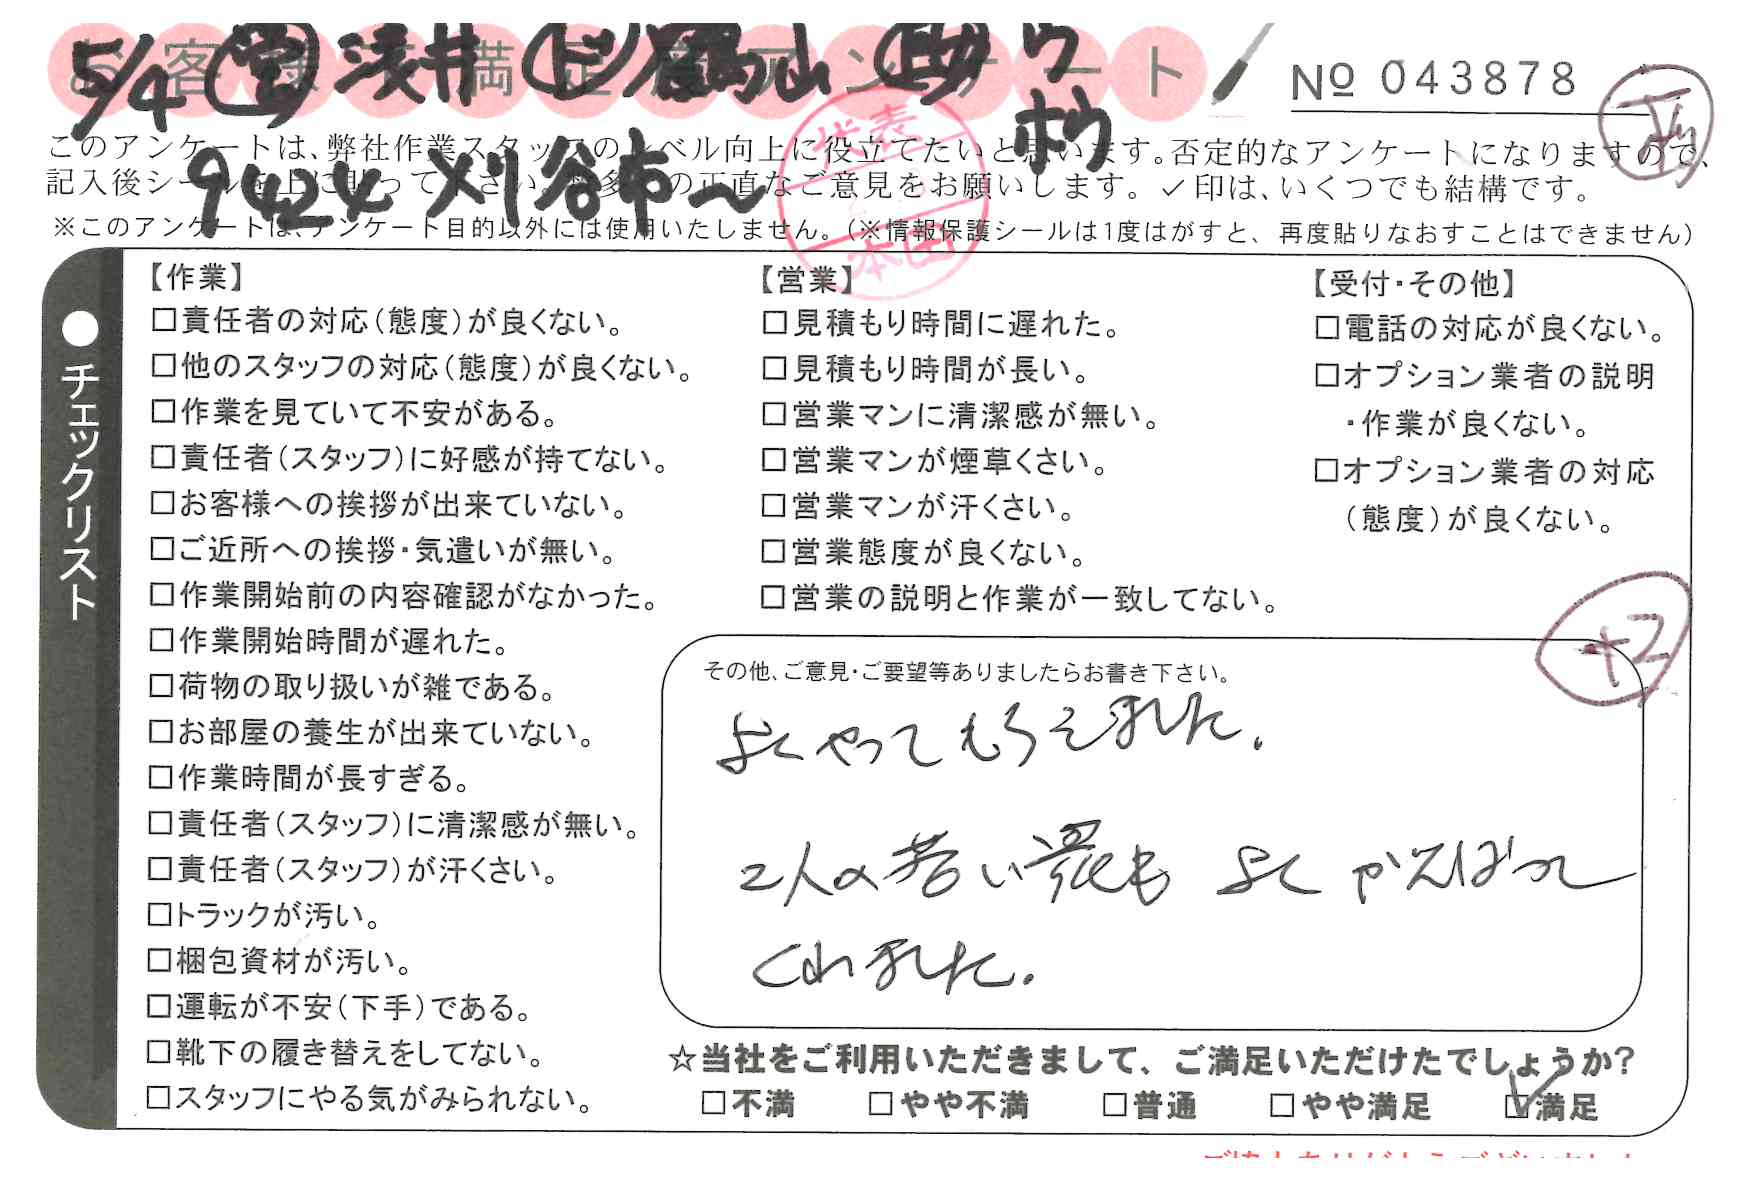 お客様ご満足度アンケート
5/4 浅井
No 043878
このアンケートは、弊社作業スタッフのレベル向上に役立てたいと思います。否定的なアンケートになりますので、
記入後シールを上に貼って下さい。数多くの正直なご意見をお願いします。✓印は、いくつでも結構です。
9424 刈谷市〜
※このアンケートは、アンケート目的以外には使用いたしません。(※情報保護シールは1度はがすと、再度貼りなおすことはできません)
代表
本田
●チェックリスト
【作業】
□責任者の対応(態度)が良くない。
□他のスタッフの対応(態度)が良くない。
□作業を見ていて不安がある。
□責任者(スタッフ)に好感が持てない。
□お客様への挨拶が出来ていない。
□ご近所への挨拶・気遣いが無い。
□作業開始前の内容確認がなかった。
□作業開始時間が遅れた。
□荷物の取り扱いが雑である。
□お部屋の養生が出来ていない。
□作業時間が長すぎる。
□責任者(スタッフ)に清潔感が無い。
□責任者(スタッフ)が汗くさい。
□トラックが汚い。
□梱包資材が汚い。
□運転が不安(下手)である。
□靴下の履き替えをしてない。
□スタッフにやる気がみられない。
【営業】
□見積もり時間に遅れた。
□見積もり時間が長い。
□営業マンに清潔感が無い。
□営業マンが煙草くさい。
□営業マンが汗くさい。
□営業態度が良くない。
□営業の説明と作業が一致してない。
【受付・その他】
□電話の対応が良くない。
□オプション業者の説明
・作業が良くない。
□オプション業者の対応
(態度)が良くない。
+2
その他、ご意見・ご要望等ありましたらお書き下さい。
よくやってもらえました.
2人の若い も よく がんばって
くれました.
☆当社をご利用いただきまして、ご満足いただけたでしょうか?
□不満 □やや不満 □普通 □やや満足 ☑満足